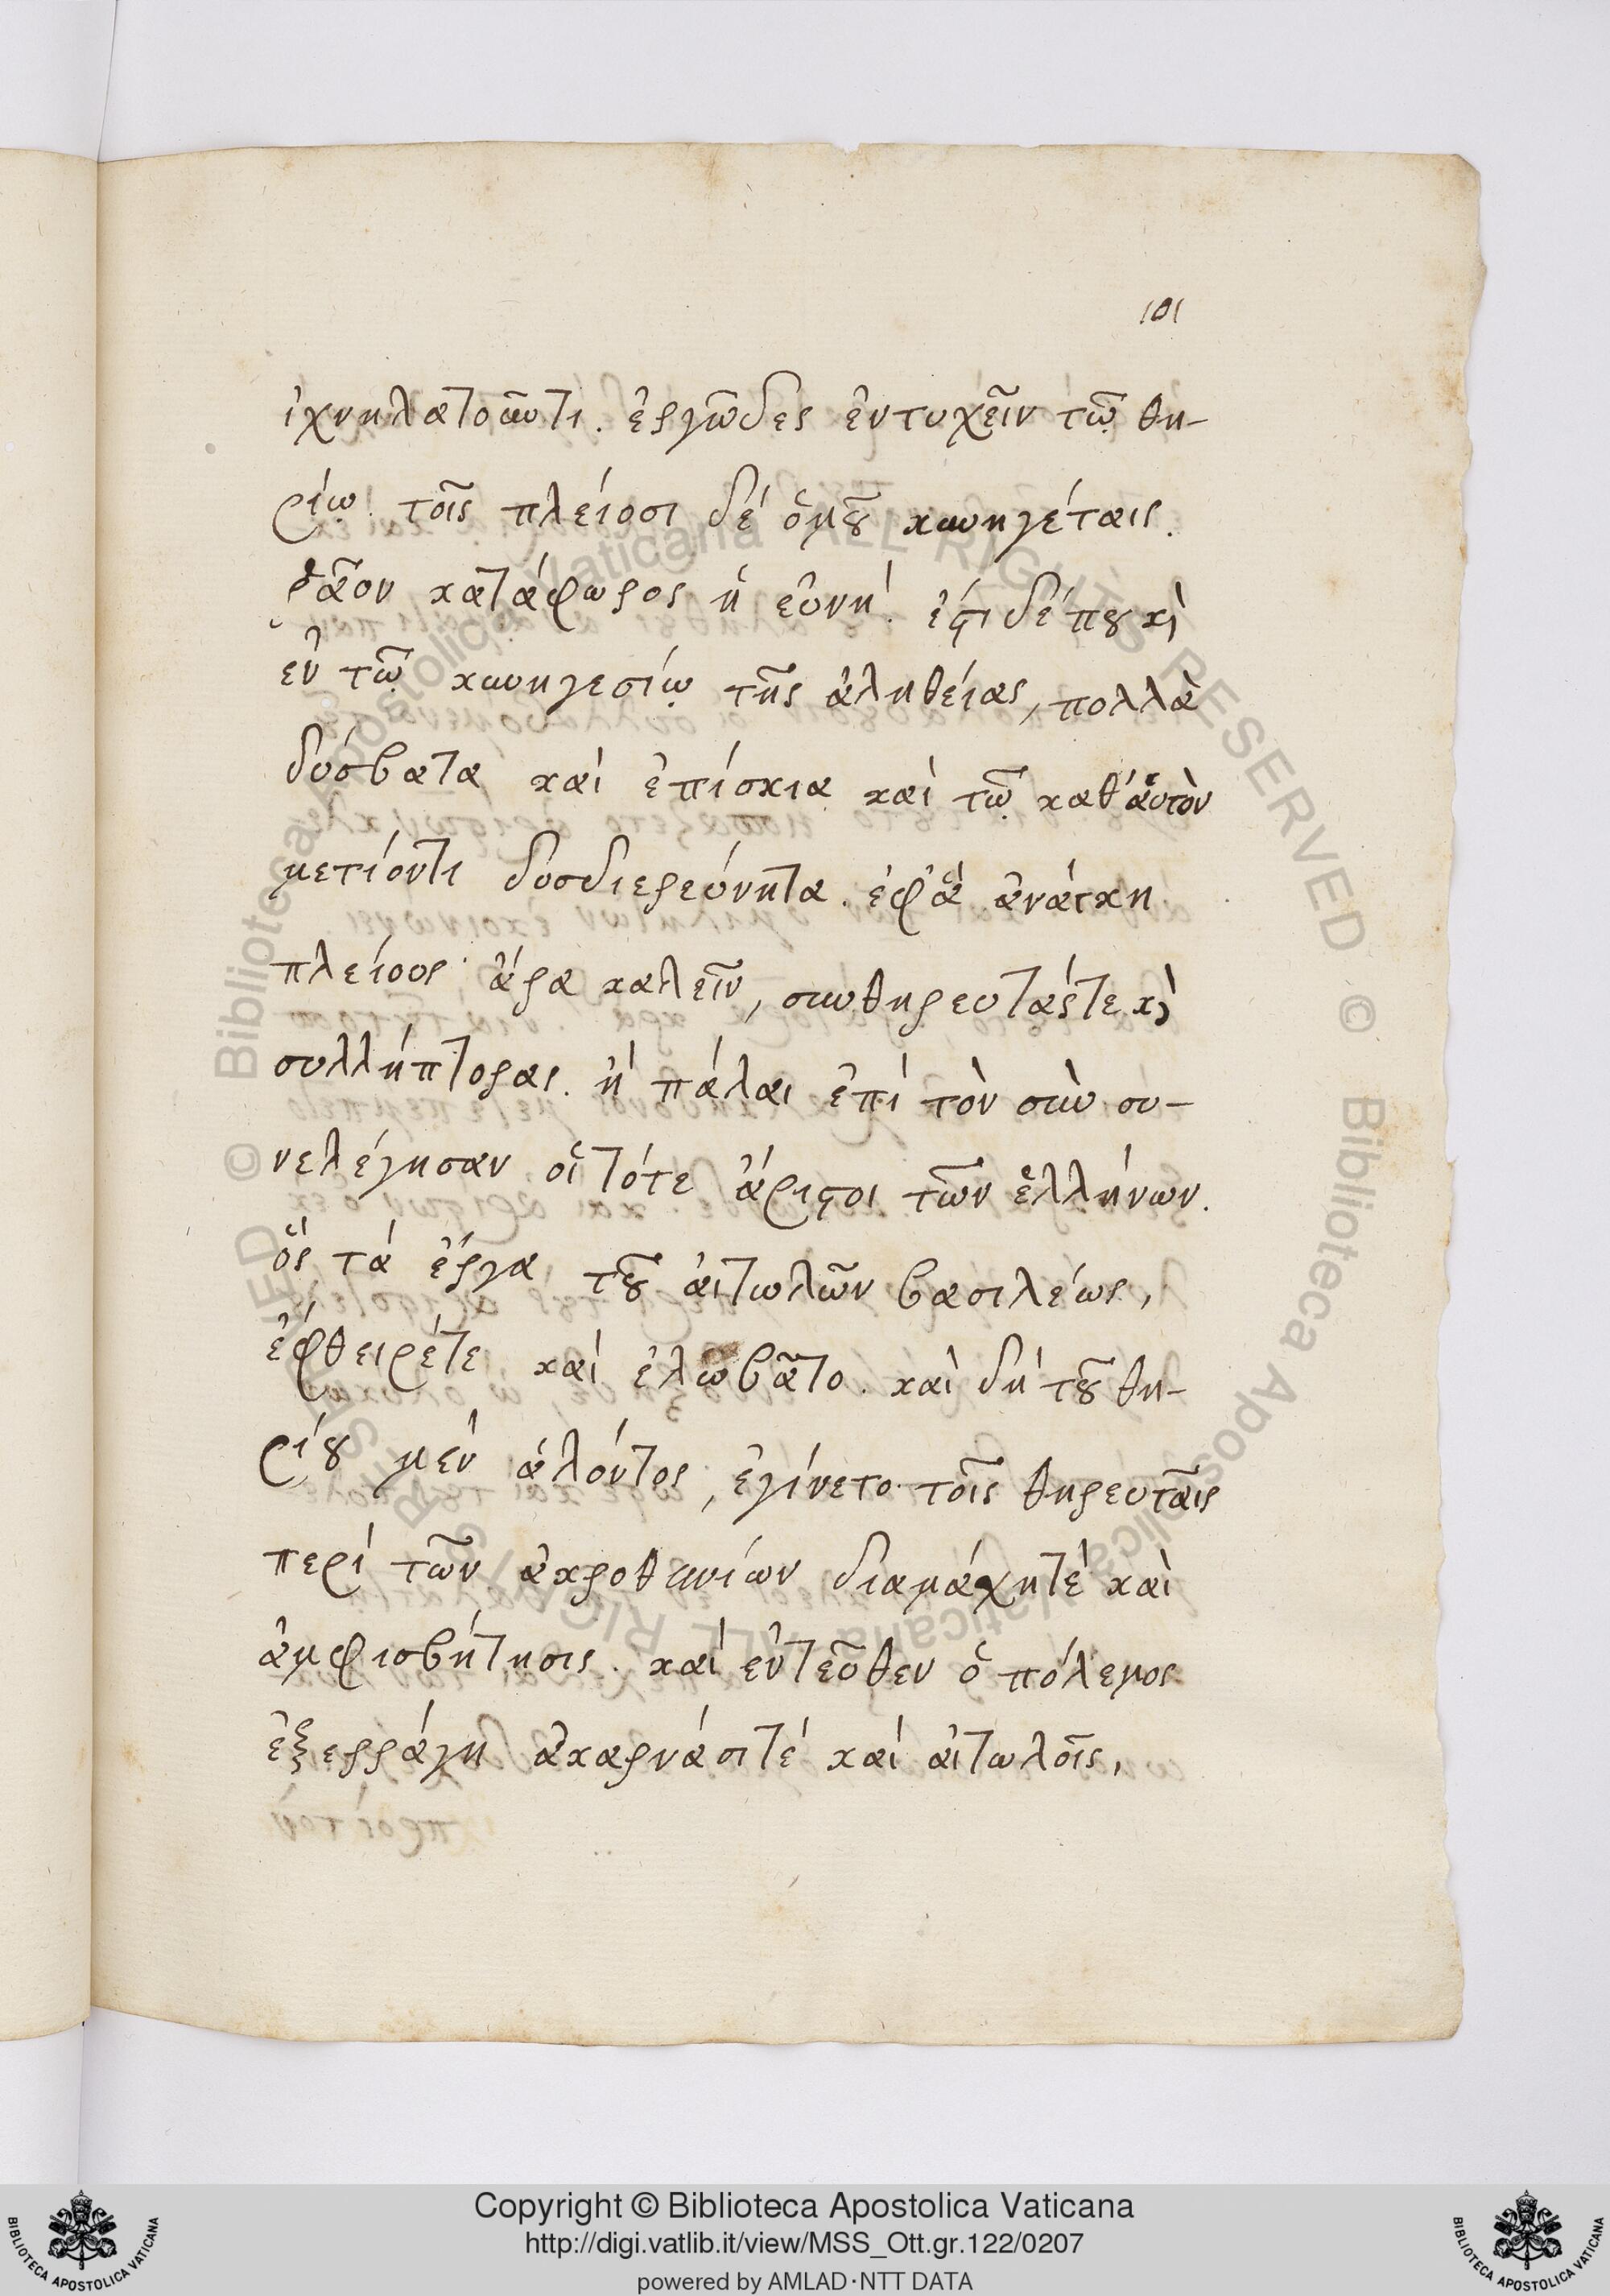 101
ἰχνηλατοῦντι. ἐργῶδες ἐντυχεῖν τῶ θη-
ρίῳ. τοῖς πλείοσι δέ ὁμȣ͂ κυνηγέταις.
ῥᾶον κατάφωρος ἡ εὐνή. ἐϛι δέ πȣ κ̀
ἐν τῷ κυνηγεσίῳ τῆς ἀληθείας, πολλὰ
δύσβατα καὶ ἐπίσκια καὶ τῷ καθ' ἁυτὸν
μετιόντι δυσδιερεύνητα. ἐφ' ἃ ἀνάγκη
πλείους ἄρα καλεῖν, συνθηρευτάς τε κ̀
συλλήπτορας. ἢ πάλαι ἐπὶ τὸν σῦν συ-
νελέγησαν οἱ τότε ἄριϛοι τῶν ἑλλήνων.
ὃς τά ἔργα τȣ͂ ἀιτωλῶν βασιλέως,
ἐφθειρέτε καὶ ἐλωβᾶτο. καὶ δή τȣ͂ θη-
ρίȣ μέν ἁλόντος, ἐγίνετο τοῖς θηρευταῖς
περὶ τῶν ἀκροθινίων διαμάχητέ καὶ
ἀμφισβήτησις. καὶ ἐντεῦθεν ὁ πόλεμος
ἐξερράγη ἀκαρνάσιτέ καὶ ἀιτωλοῖς,
© Biblioteca Apostolica Vaticana ALL RIGHTS RESERVED © Biblioteca Apostolica Vaticana ALL RIGHTS RESERVED
Copyright © Biblioteca Apostolica Vaticana
http://digi.vatlib.it/view/MSS_Ott.gr.122/0207
powered by AMLAD·NTT DATA
BIBLIOTECA APOSTOLICA VATICANA
BIBLIOTECA APOSTOLICA VATICANA